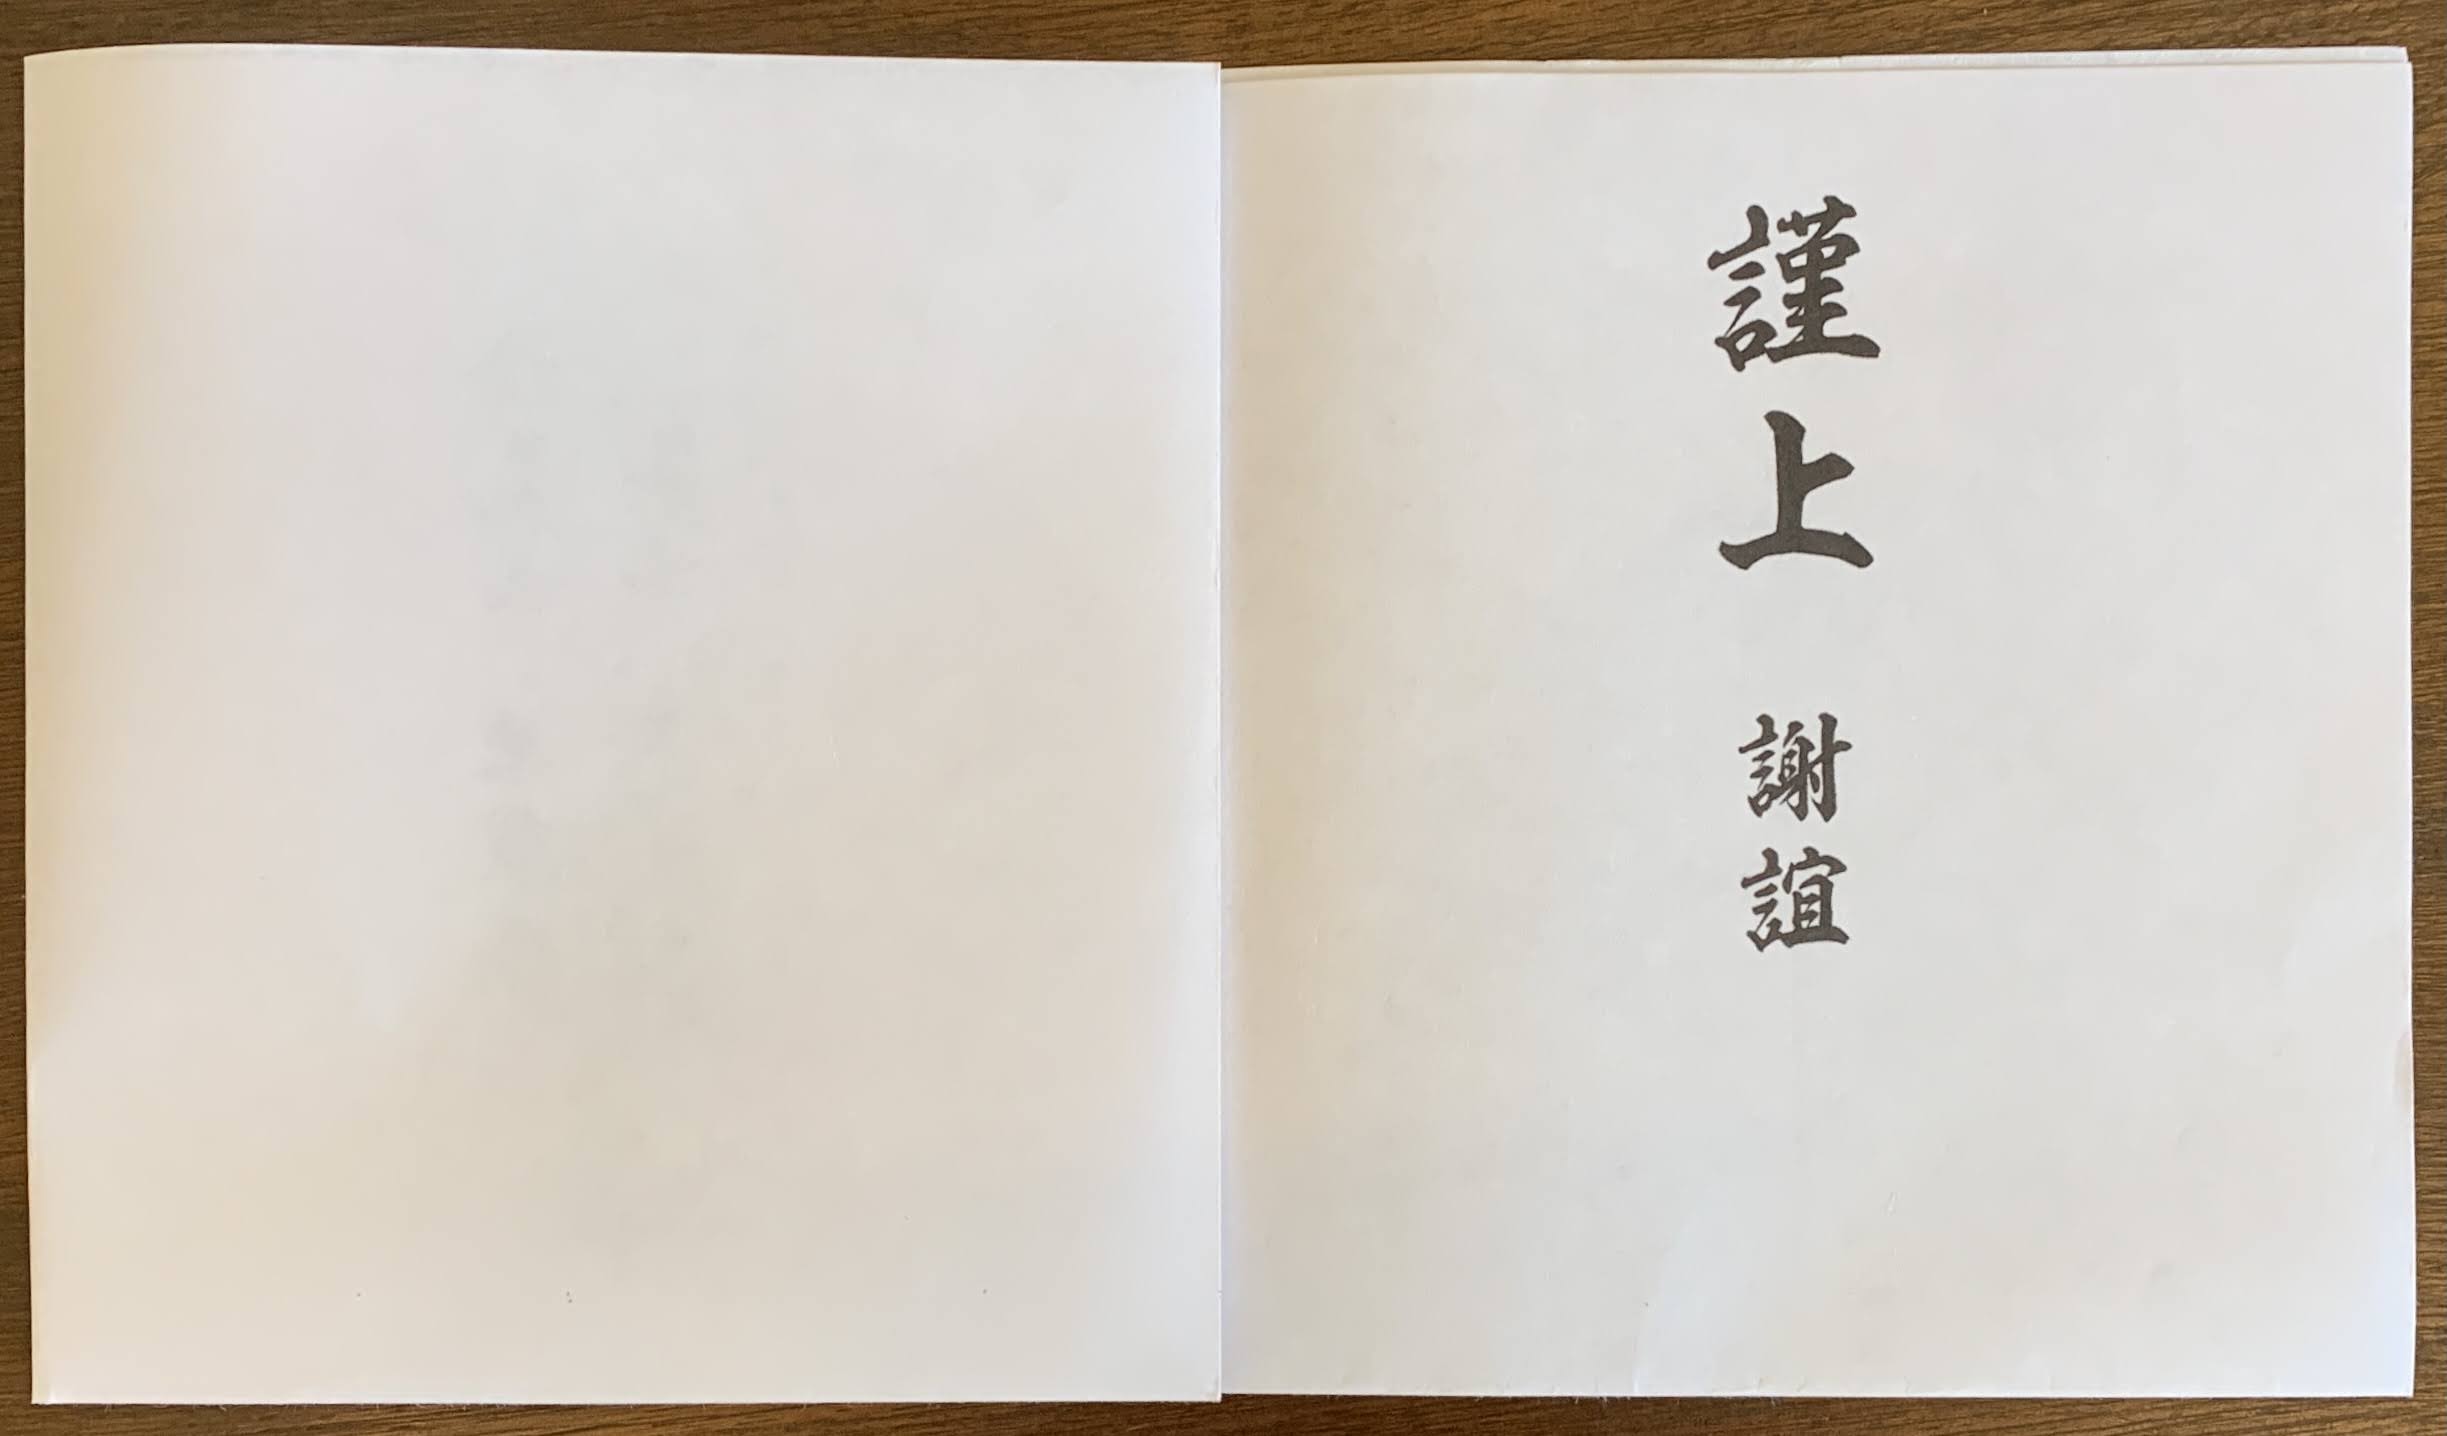 謹上 謝誼